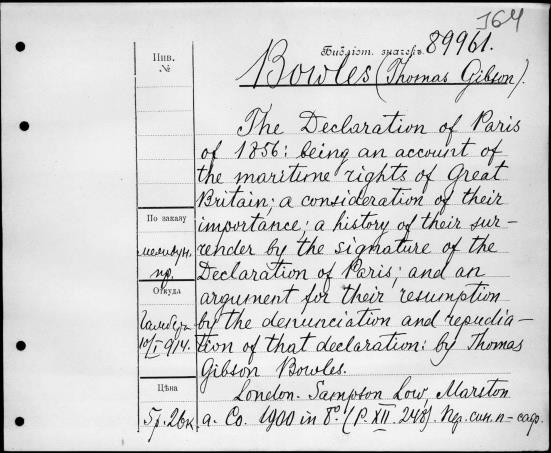 364
Библіот. значекъ. 89961.
Инв. №
Bowles (Thomas Gibson).
The Declaration of Paris
of 1856: being an account of
the maritime rights of Great
Britain; a consideration of their
По заказу
importance; a history of their sur-
render by the signature of the
пр.
Declaration of Paris; and an
Откуда
argument for their resumption
by the denunciation and repudia-
10/I 914.
tion of that declaration: by Thomas
Gibson Bowles.
Цѣна
London. Sampson Low, Marston
5р. 26к
a. Co. 1900 in 8º. (P. XII. 248). Пер. син. п-